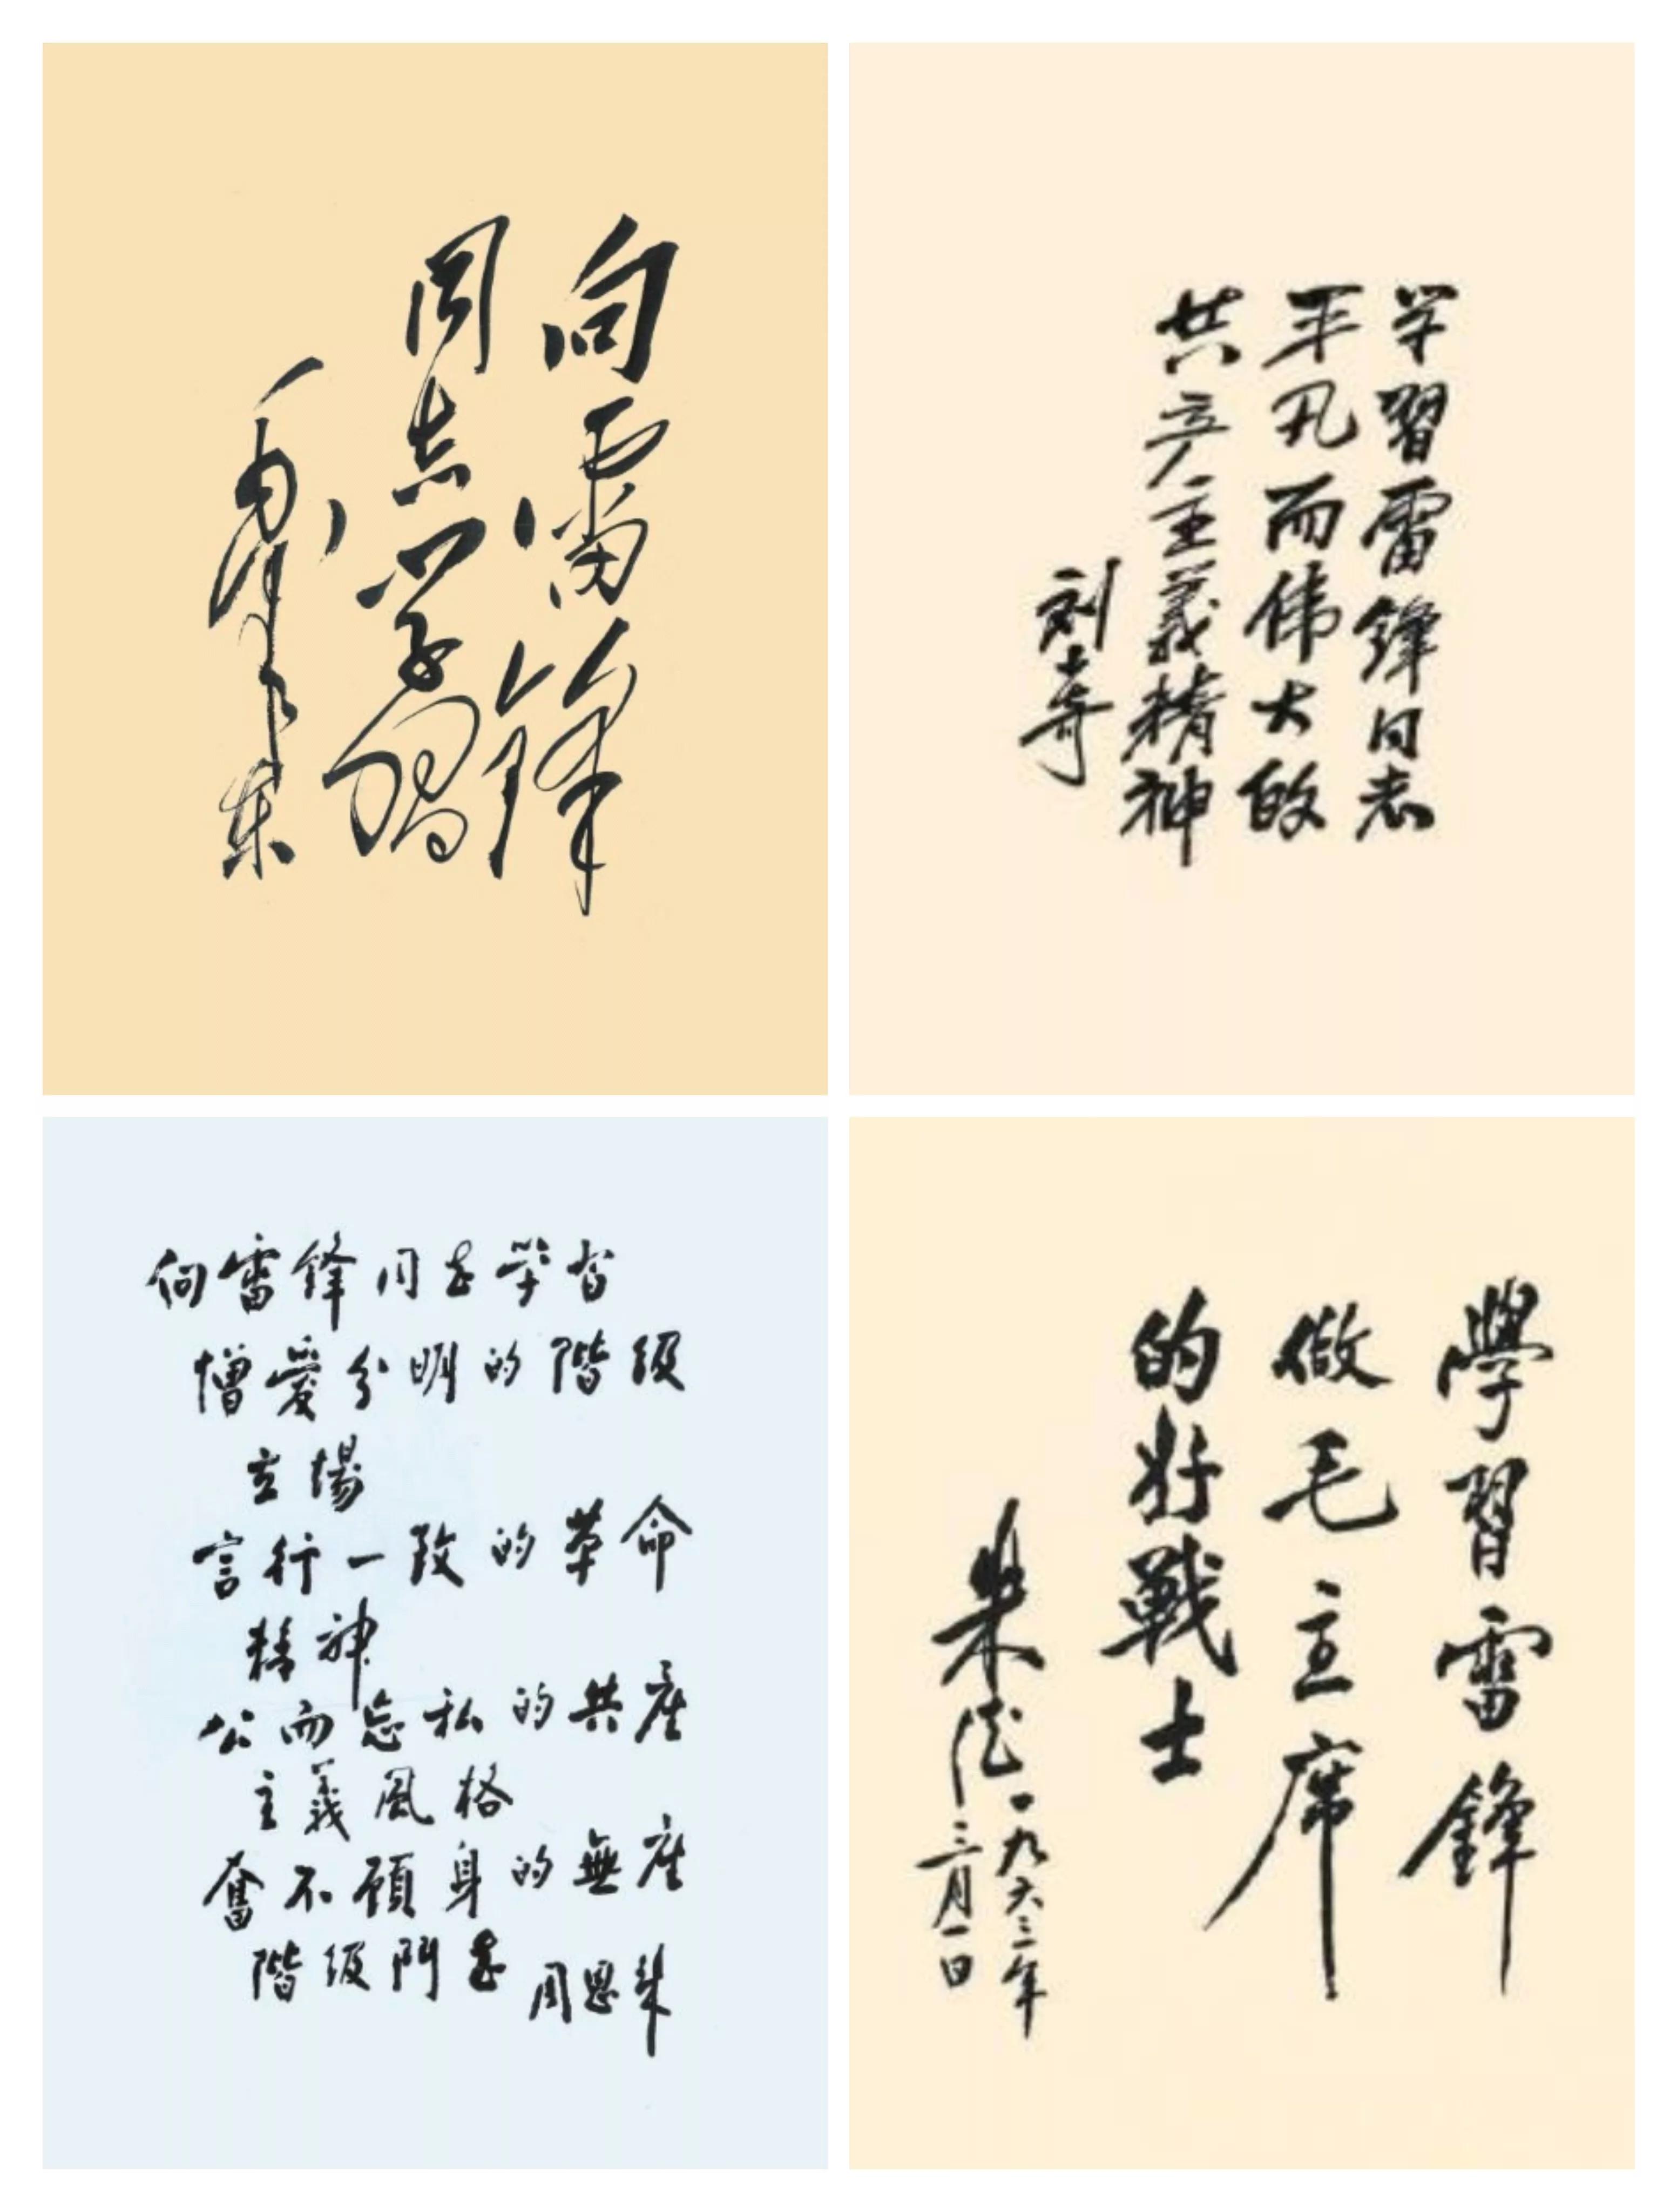 向雷锋
同志学习
毛泽东
学習雷鋒同志
平凡而伟大的
共产主義精神
刘少奇
向雷鋒同志学習
憎愛分明的階级
立場
言行一致的革命
精神
公而忘私的共産
主義風格
奮不顧身的無産
階级鬥志
周恩来
學習雷鋒
做毛主席
的好戰士
朱德
一九六三年
三月一日